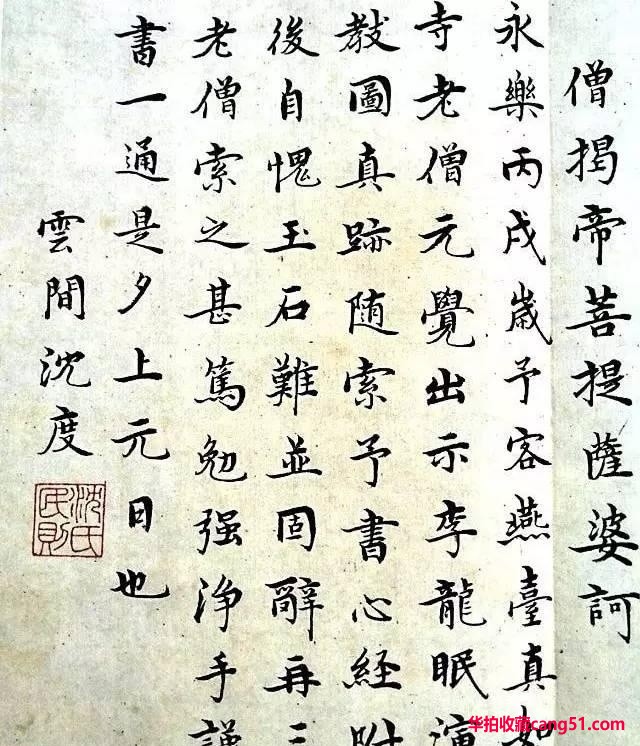 僧揭帝菩提薩婆訶
永樂丙戌歲予客燕臺真如
寺老僧元覺出示李龍眠演
教圖真跡随索予書心經附
後自愧玉石難並固辭再三
老僧索之甚篤勉强淨手謹
書一通是夕上元日也
雲間沈度
沈氏民則
华拍收藏cang51.com